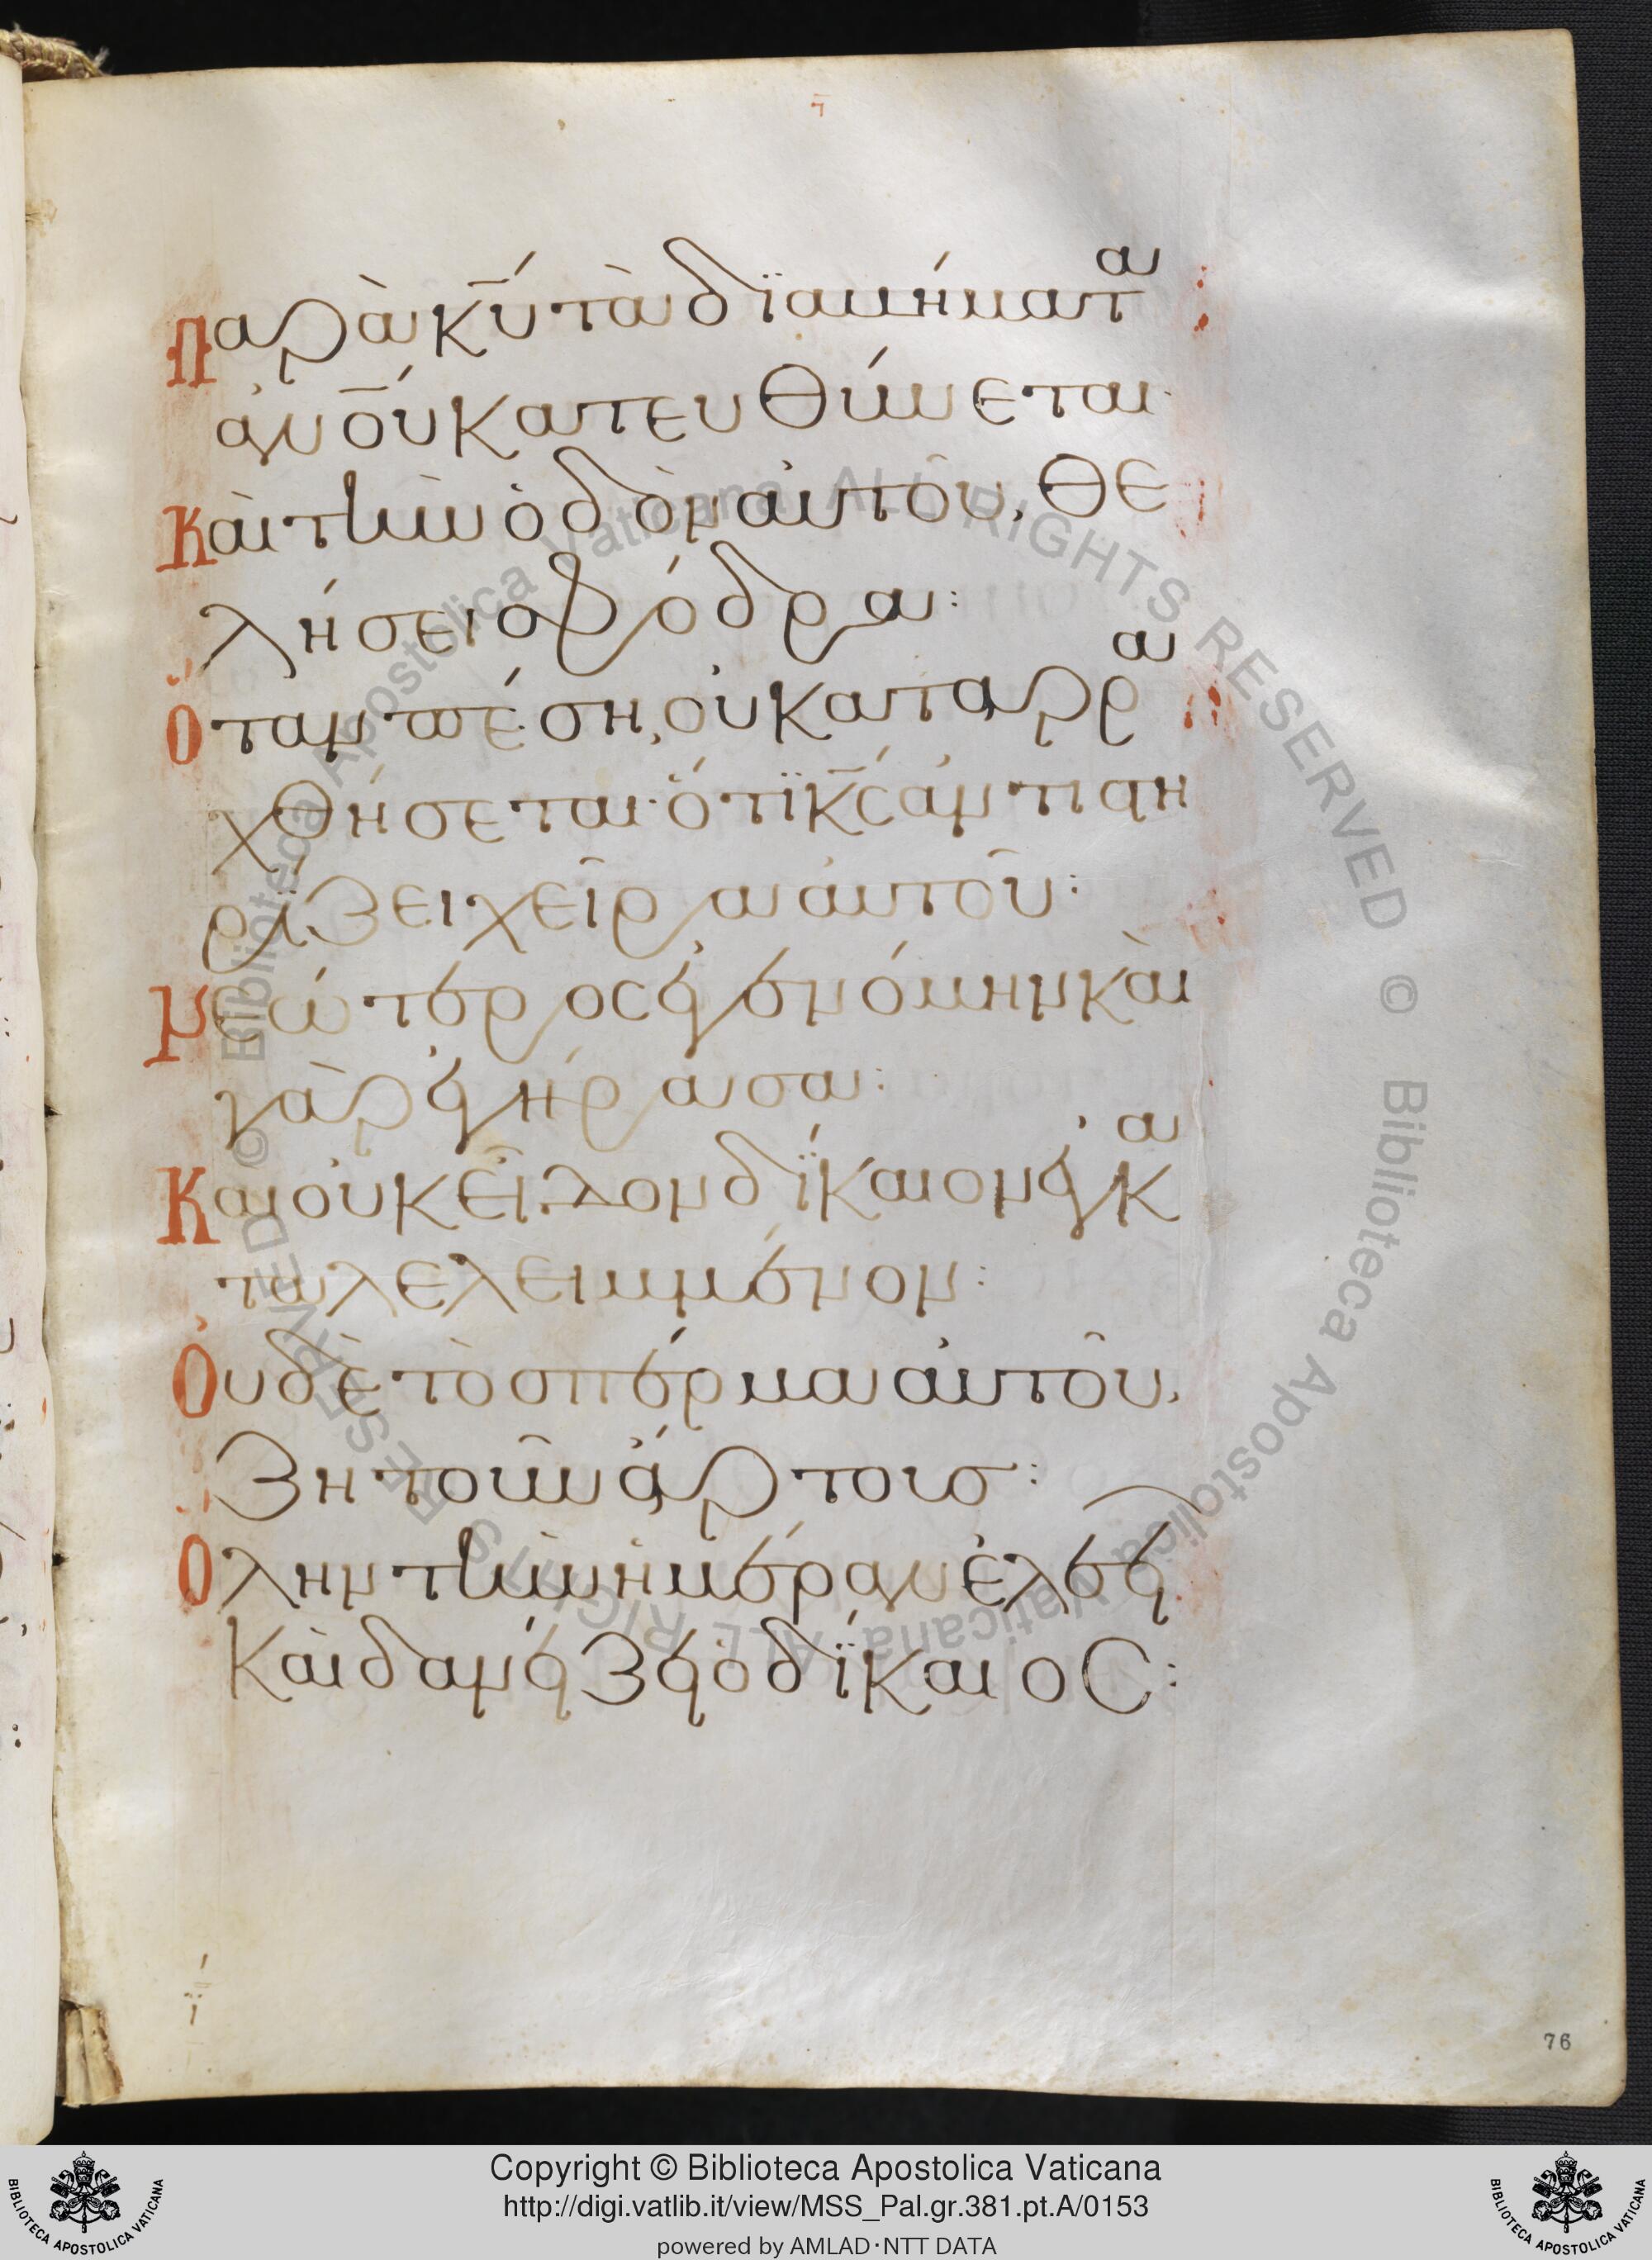 Παρὰ κ̅ύ τὰ διαβήματα
ἀν̅όυ κατευθύνεται·
Καὶ τὴν ὁδὸν αὐτοῦ, θε
λήσει σφόδρα:
Ὅταν πέσῃ, οὐ καταρρα
χθήσεται· ὅτι κ̅ς́ ἀντιστη
ρίζει χεῖρα αὐτοῦ:
Νεώτερος ἐγενόμην καὶ
γὰρ ἐγήρασα:
Καὶ οὐκ εἶδον δίκαιον ἐγκα
ταλελειμμένον:
Οὐδὲ τὸ σπέρμα αὐτοῦ,
ζητοῦν ἄρτους:
Ὅλην τὴν ἡμέραν ἐλεεῖ
καὶ δανείζει ὁ δίκαιος:
76
© Biblioteca Apostolica Vaticana ALL RIGHTS RESERVED © Biblioteca Apostolica Vaticana ALL RIGHTS RESERVED
Copyright © Biblioteca Apostolica Vaticana
http://digi.vatlib.it/view/MSS_Pal.gr.381.pt.A/0153
powered by AMLAD·NTT DATA
BIBLIOTECA APOSTOLICA VATICANA
BIBLIOTECA APOSTOLICA VATICANA